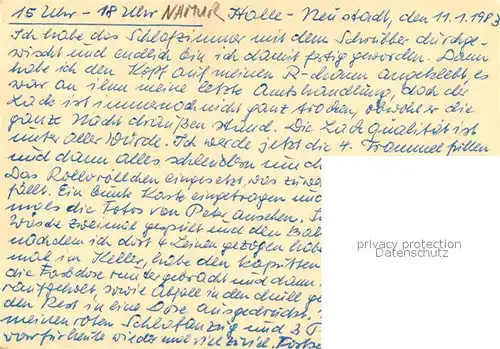 15 Uhr - 18 Uhr NAMUR Halle - Neustadt, den 11.1.1983
Ich habe das Schlafzimmer mit dem Schrubber durchge-
wischt und endlich bin ich damit fertig geworden. Dann
habe ich den Kopf auf meinen angeklebt, es
war an ihm meine letzte Amtshandlung, doch der
Lack ist immer noch nicht ganz trocken, obwohl er die
ganze Nacht draußen stand. Die Lackqualität ist
unter aller Würde. Ich werde jetzt die 4. Trommel füllen
und dann alles schleudern und
Das Rollo eingesetzt, was
fällt. Ein bunte Karte eingetragen und
mals die Fotos von Peter ansehen. I
Wäsche zweimal gespült und den
nachdem ich dort 4 Leinen gezogen habe
mal im Keller, habe den kaputten
die Farbdose runtergebracht und dann
raufgeholt, sowie Abfall in den Müll ge
den Rest in eine Dose ausgedrückt.
meinen roten Schlafanzug und 3
vor für heute wieder mal viel zu viel.
privacy protection
Datenschutz